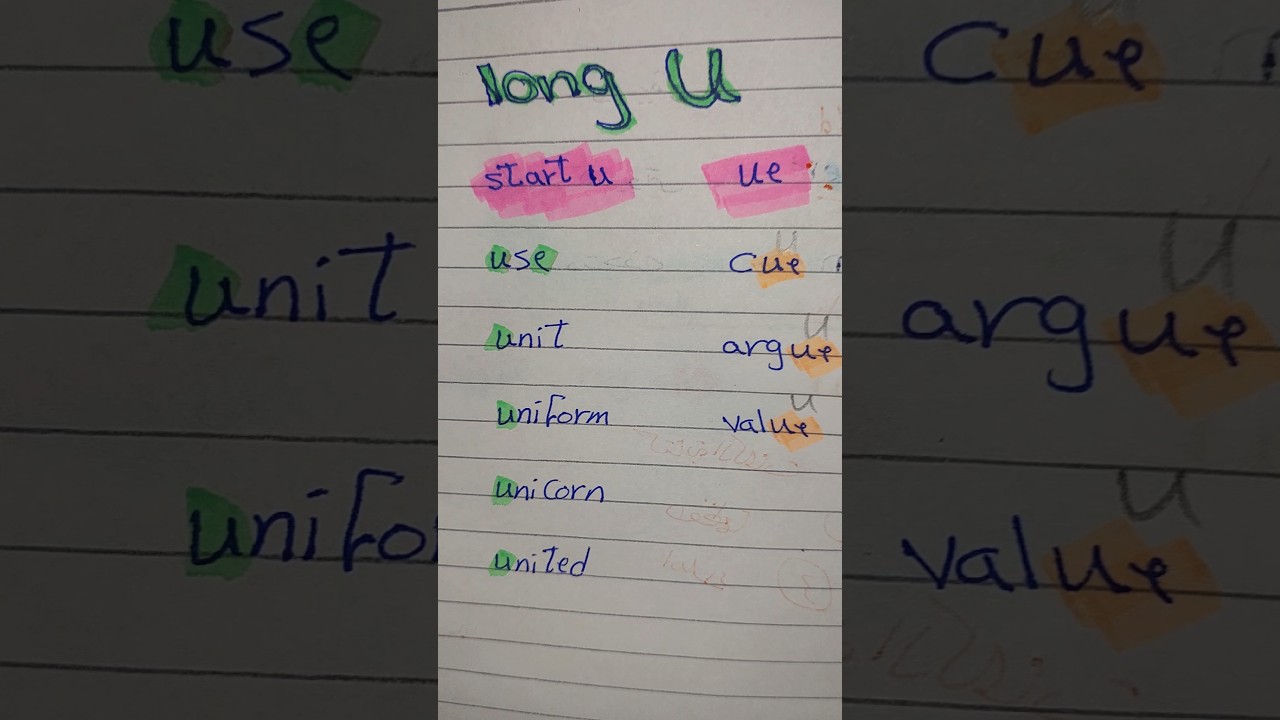 long U
start u ue
use cue
unit argue
uniform value
unicorn
united